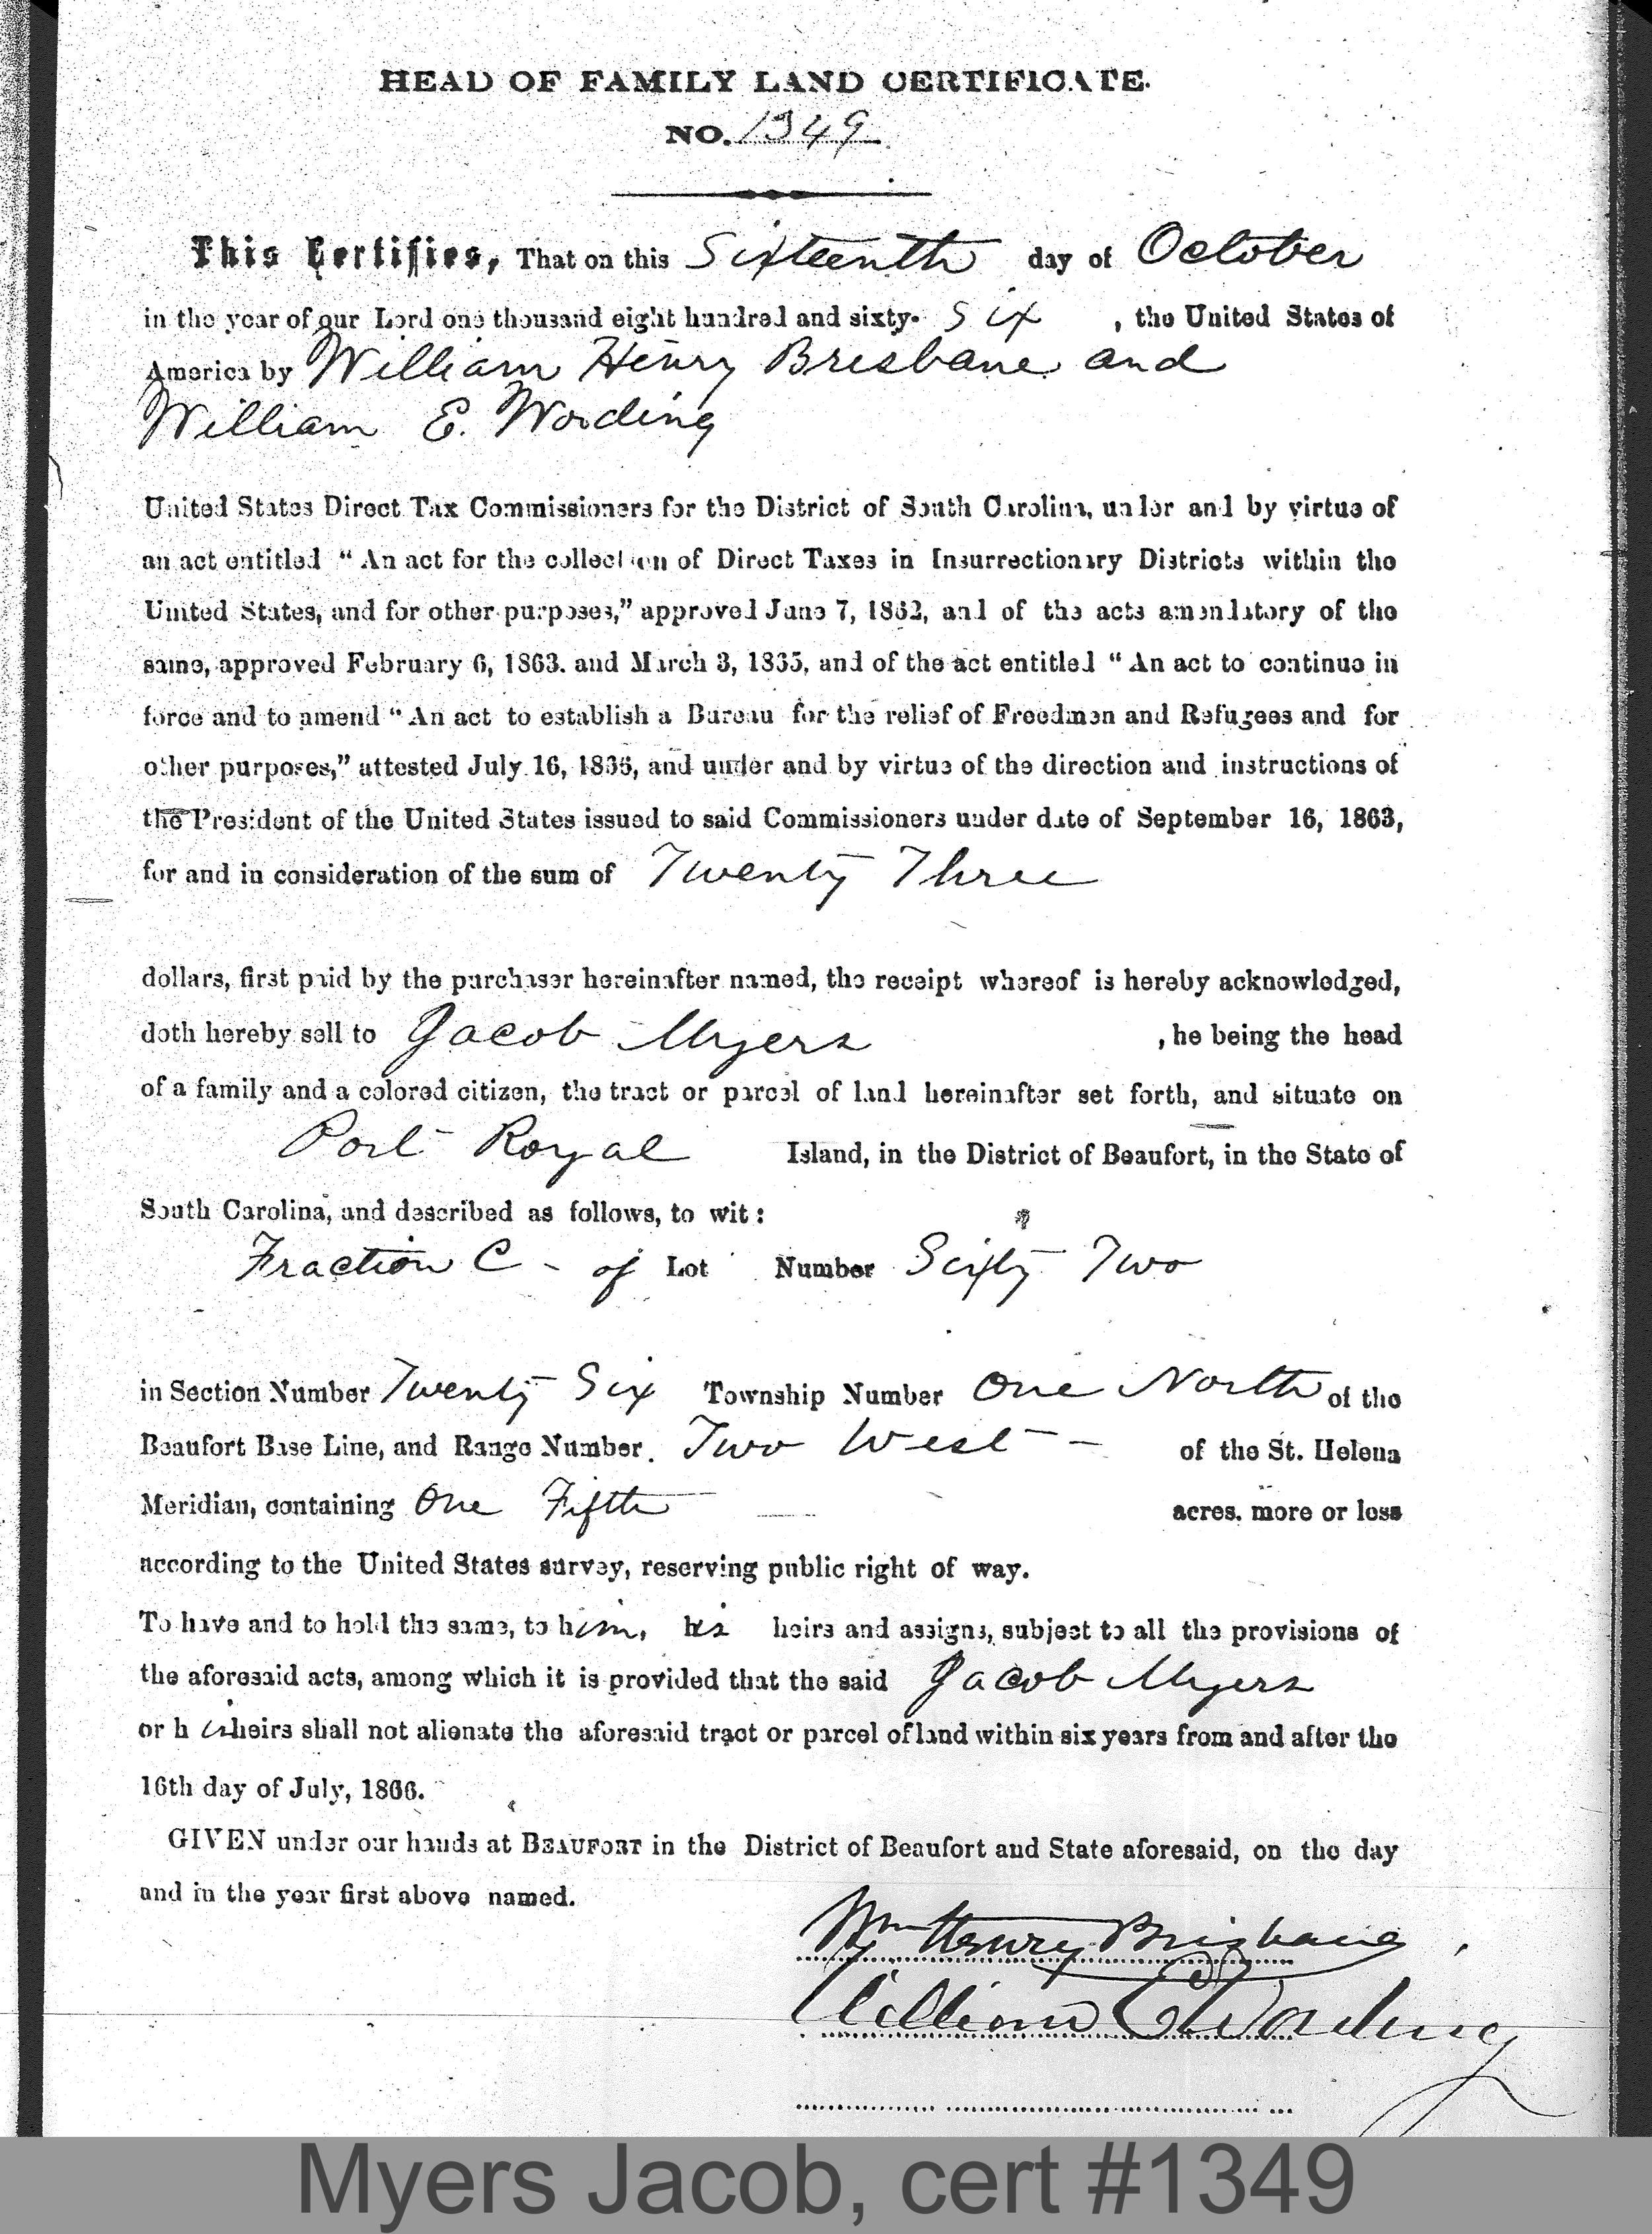 HEAD OF FAMILY LAND CERTIFICATE.
NO. 1349
This Certifies, That on this Sixteenth day of October
in the year of our Lord one thousand eight hundred and sixty- Six , the United States of
America by William Henry Brisbane and
William E. Wording
United States Direct Tax Commissioners for the District of South Carolina, under and by virtue of
an act entitled “ An act for the collection of Direct Taxes in Insurrectionary Districts within the
United States, and for other purposes,” approved June 7, 1862, and of the acts amendatory of the
same, approved February 6, 1863. and March 3, 1865, and of the act entitled “ An act to continue in
force and to amend “ An act to establish a Bureau for the relief of Freedmen and Refugees and for
other purposes,” attested July 16, 1866, and under and by virtue of the direction and instructions of
the President of the United States issued to said Commissioners under date of September 16, 1863,
for and in consideration of the sum of Twenty Three
dollars, first paid by the purchaser hereinafter named, the receipt whereof is hereby acknowledged,
doth hereby sell to Jacob Myers , he being the head
of a family and a colored citizen, the tract or parcel of land hereinafter set forth, and situate on
Port Royal Island, in the District of Beaufort, in the State of
South Carolina, and described as follows, to wit :
Fraction C - of Lot Number Sixty Two
in Section Number Twenty Six Township Number One North of the
Beaufort Base Line, and Range Number Two West - of the St. Helena
Meridian, containing One Fifth acres. more or less
according to the United States survey, reserving public right of way.
To have and to hold the same, to him, his heirs and assigns, subject to all the provisions of
the aforesaid acts, among which it is provided that the said Jacob Myers
or his heirs shall not alienate the aforesaid tract or parcel of land within six years from and after the
16th day of July, 1866.
GIVEN under our hands at BEAUFORT in the District of Beaufort and State aforesaid, on the day
and in the year first above named.
Wm Henry Brisbane
William E Wording
Myers Jacob, cert #1349